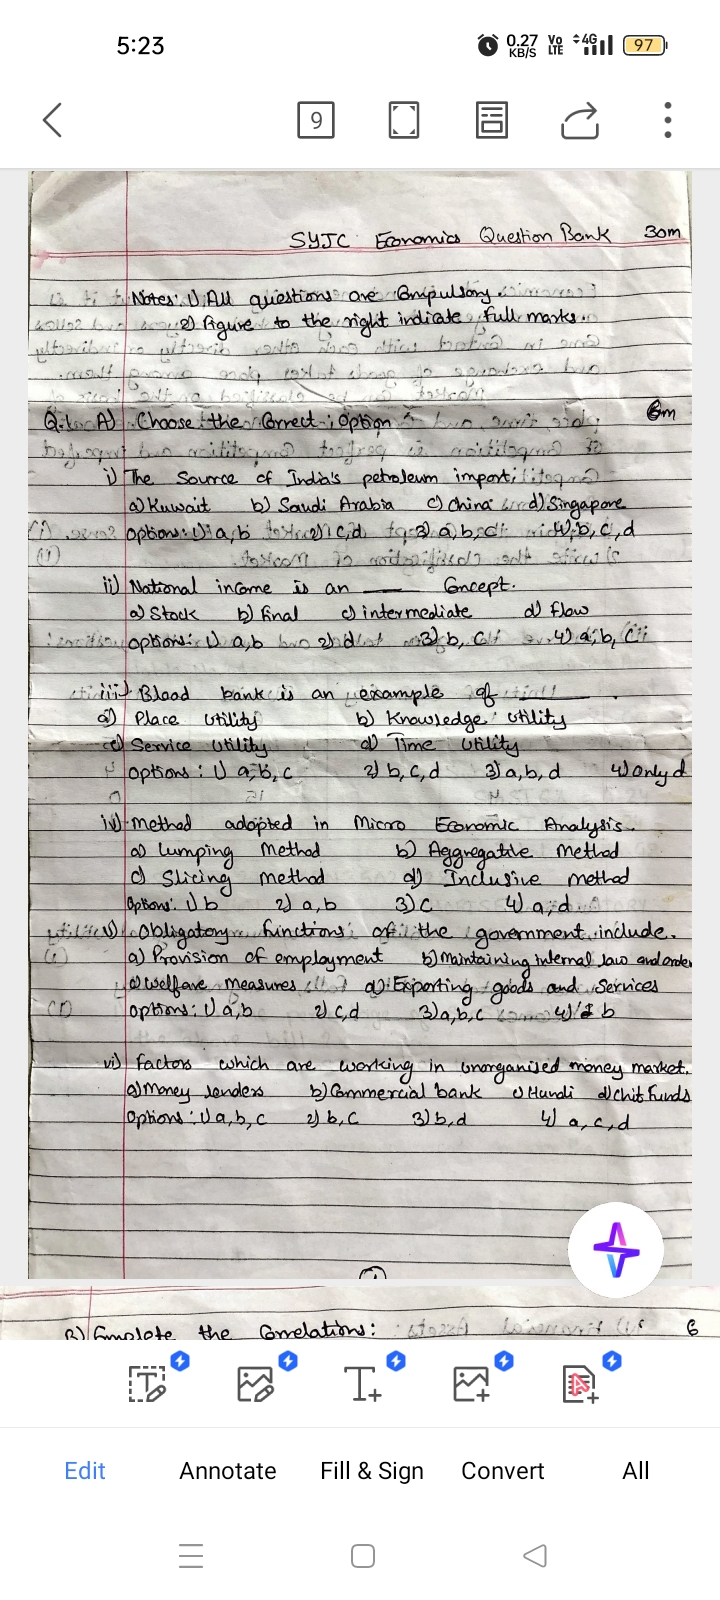 5:23
0.27 KB/S Vo LTE 4G 97
9
SYJC Economics Question Bank 30m
Notes: 1) All questions are Compulsory.
2) figure to the right indicate full marks.
Q.1. A) Choose the Correct option 6m
i) The Source of India's petroleum import:
a) Kuwait b) Saudi Arabia c) China d) Singapore
options: 1) a, b 2) c, d 3) a, b, 4) b, c, d
ii) National income is an ____ Concept.
a) Stock b) final c) intermediate d) flow
options: 1) a, b 2) d 3) b, c 4) a, b, c
iii) Blood bank is an example of ____.
a) Place Utility b) Knowledge Utility
c) Service Utility d) Time Utility
options: 1) a, b, c 2) b, c, d 3) a, b, d 4) only d
iv) method adopted in Micro Economic Analysis.
a) Lumping Method b) Aggregative Method
c) Slicing method d) Inclusive method
Options: 1) b 2) a, b 3) c 4) a, d
v) Obligatory functions of the government include.
a) Provision of employment b) Maintaining internal law and order
c) welfare measures d) Exporting goods and Services
options: 1) a, b 2) c, d 3) a, b, c 4) b
vi) factors which are working in unorganised money market.
a) money lenders b) Commercial bank c) Hundi d) chit funds
Options: 1) a, b, c 2) b, c 3) b, d 4) a, c, d
1
B) Complete the Correlations: 6
Edit Annotate Fill & Sign Convert All